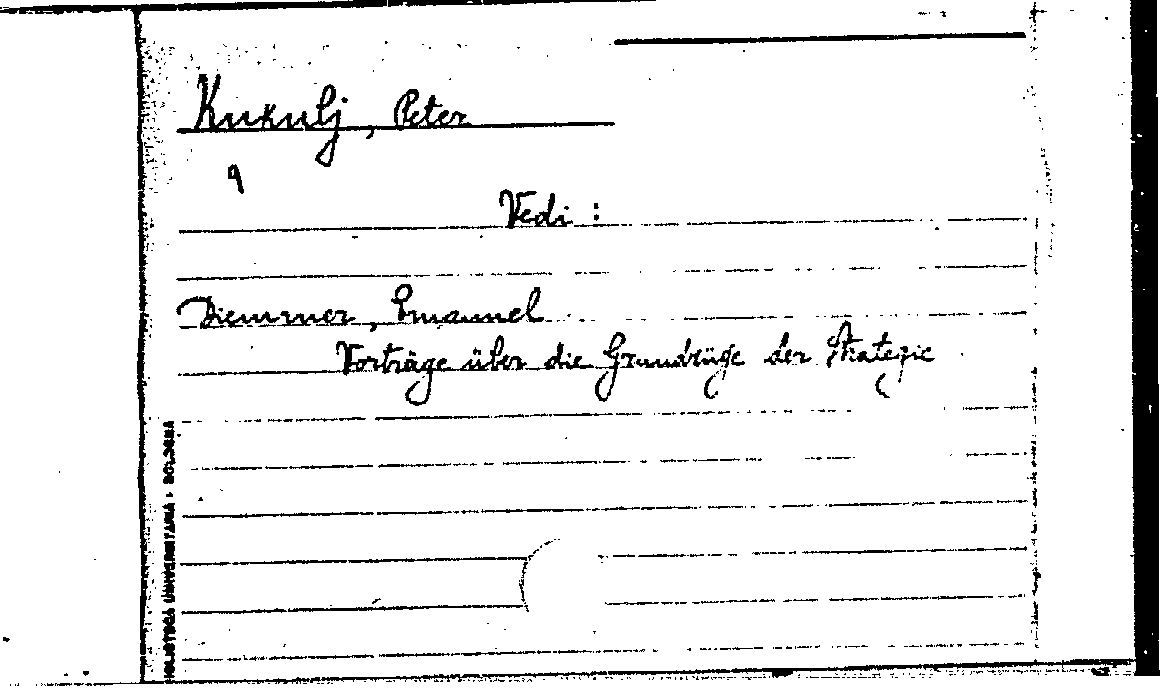 Kukulj, Peter
Vedi :
Diemmer, Emanuel
Vorträge über die Grundzüge der Strategie
BIBLIOTECA UNIVERSITARIA - BOLOGNA